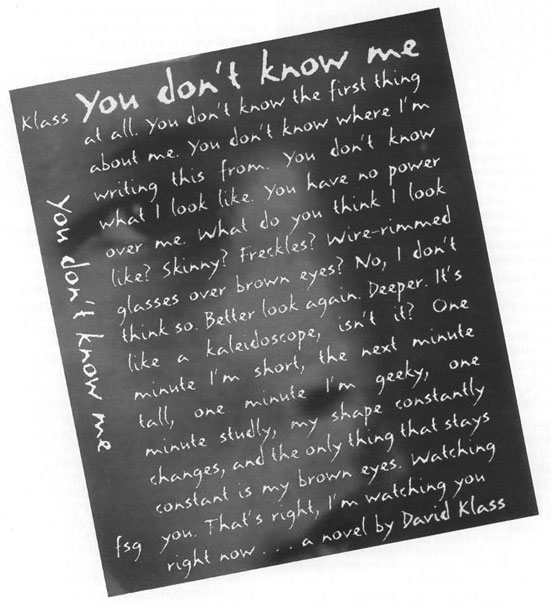 You don't know me
Klass
at all. You don't know the first thing
about me. You don't know where I'm
writing this from. You don't know
what I look like. You have no power
over me. What do you think I look
like? Skinny? Freckles? Wire-rimmed
glasses over brown eyes? No, I don't
think so. Better look again. Deeper. It's
like a kaleidoscope, isn't it? One
minute I'm short, the next minute
tall, one minute I'm geeky, one
minute studly, my shape constantly
changes, and the only thing that stays
constant is my brown eyes. Watching
you. That's right, I'm watching you
right now . . . . a novel by David Klass
You don't know me
fsg